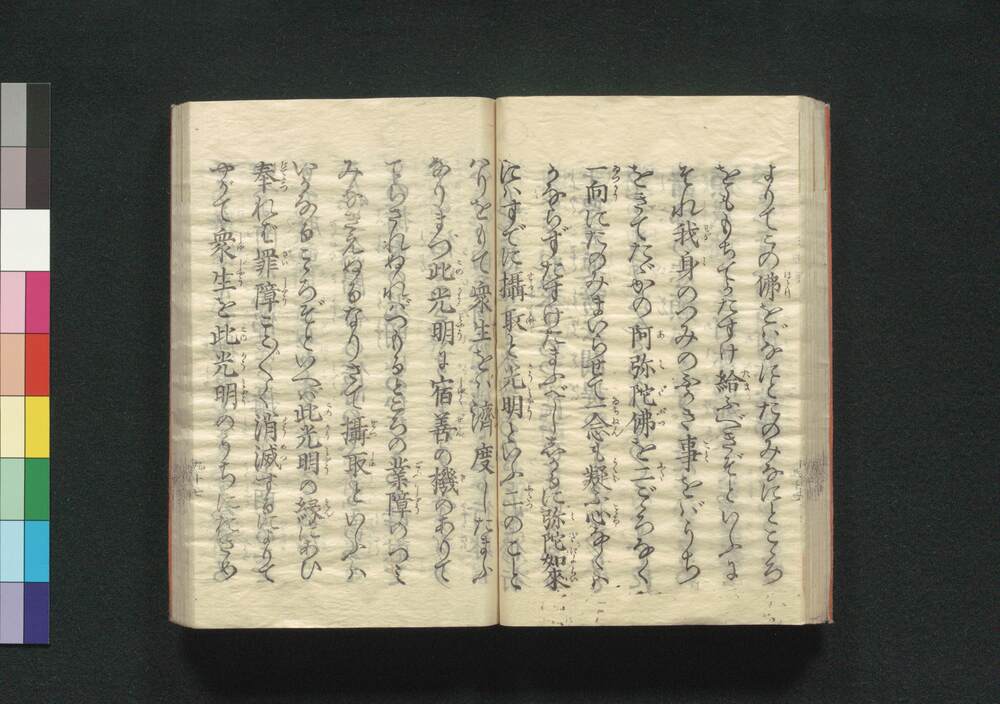 よりてこの佛をばなにとたのみなにところ
をももちてかたすけ給ふべきぞといふに
それ我身のつみのふかき事をばうち
をきてたゞかの阿弥陀佛を二ごゝろなく
一向にたのみまいらせて一念も疑ふ心なくハ
かならずたすけたまふべししかるに弥陀如來
にハすでに攝取と光明といふ二のこと
ハりをもて衆生をバ濟度したまふ
なりまづ此光明に宿善の機のありて
てらされぬれバつもるところの業障のつミ
みなきえぬるなりさて攝取といふハ
いかなるこゝろぞといへバ此光明の縁にあひ
奉れば罪障こと〴〵く消滅するによりて
やがて衆生を此光明のうちにおさめ